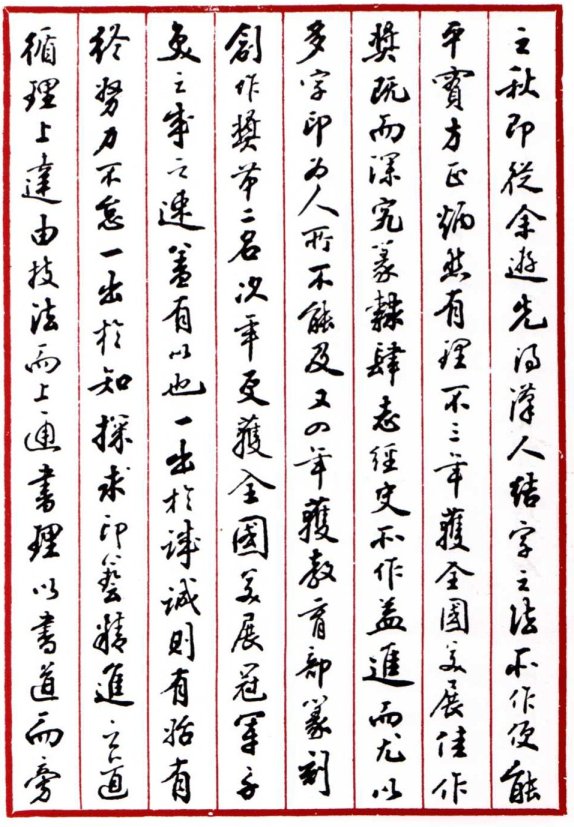 之秋即從余遊先得漢人結字之法所作便能
平實方正炳然有理不三年獲全國美展佳作
獎既而深究篆隸肆志經史所作益進而尤以
多字印為人所不能及又四年獲教育部篆刻
創作獎第二名次年更獲全國美展冠軍子
奐之成之速蓋有以也一出於誠誠則有始有
終努力不怠一出於知探求印藝精進之道
循理上達由技法而上通書理以書道而旁